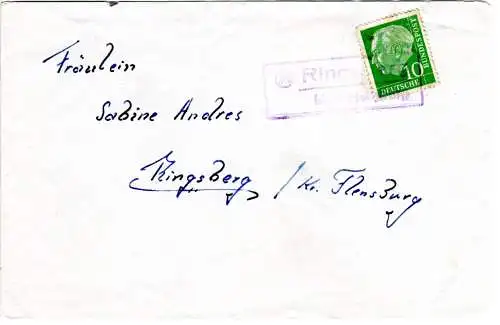 Fräulein
Sabine Andres
Ringsberg / Kr. Flensburg
10
DEUTSCHE
BUNDESPOST